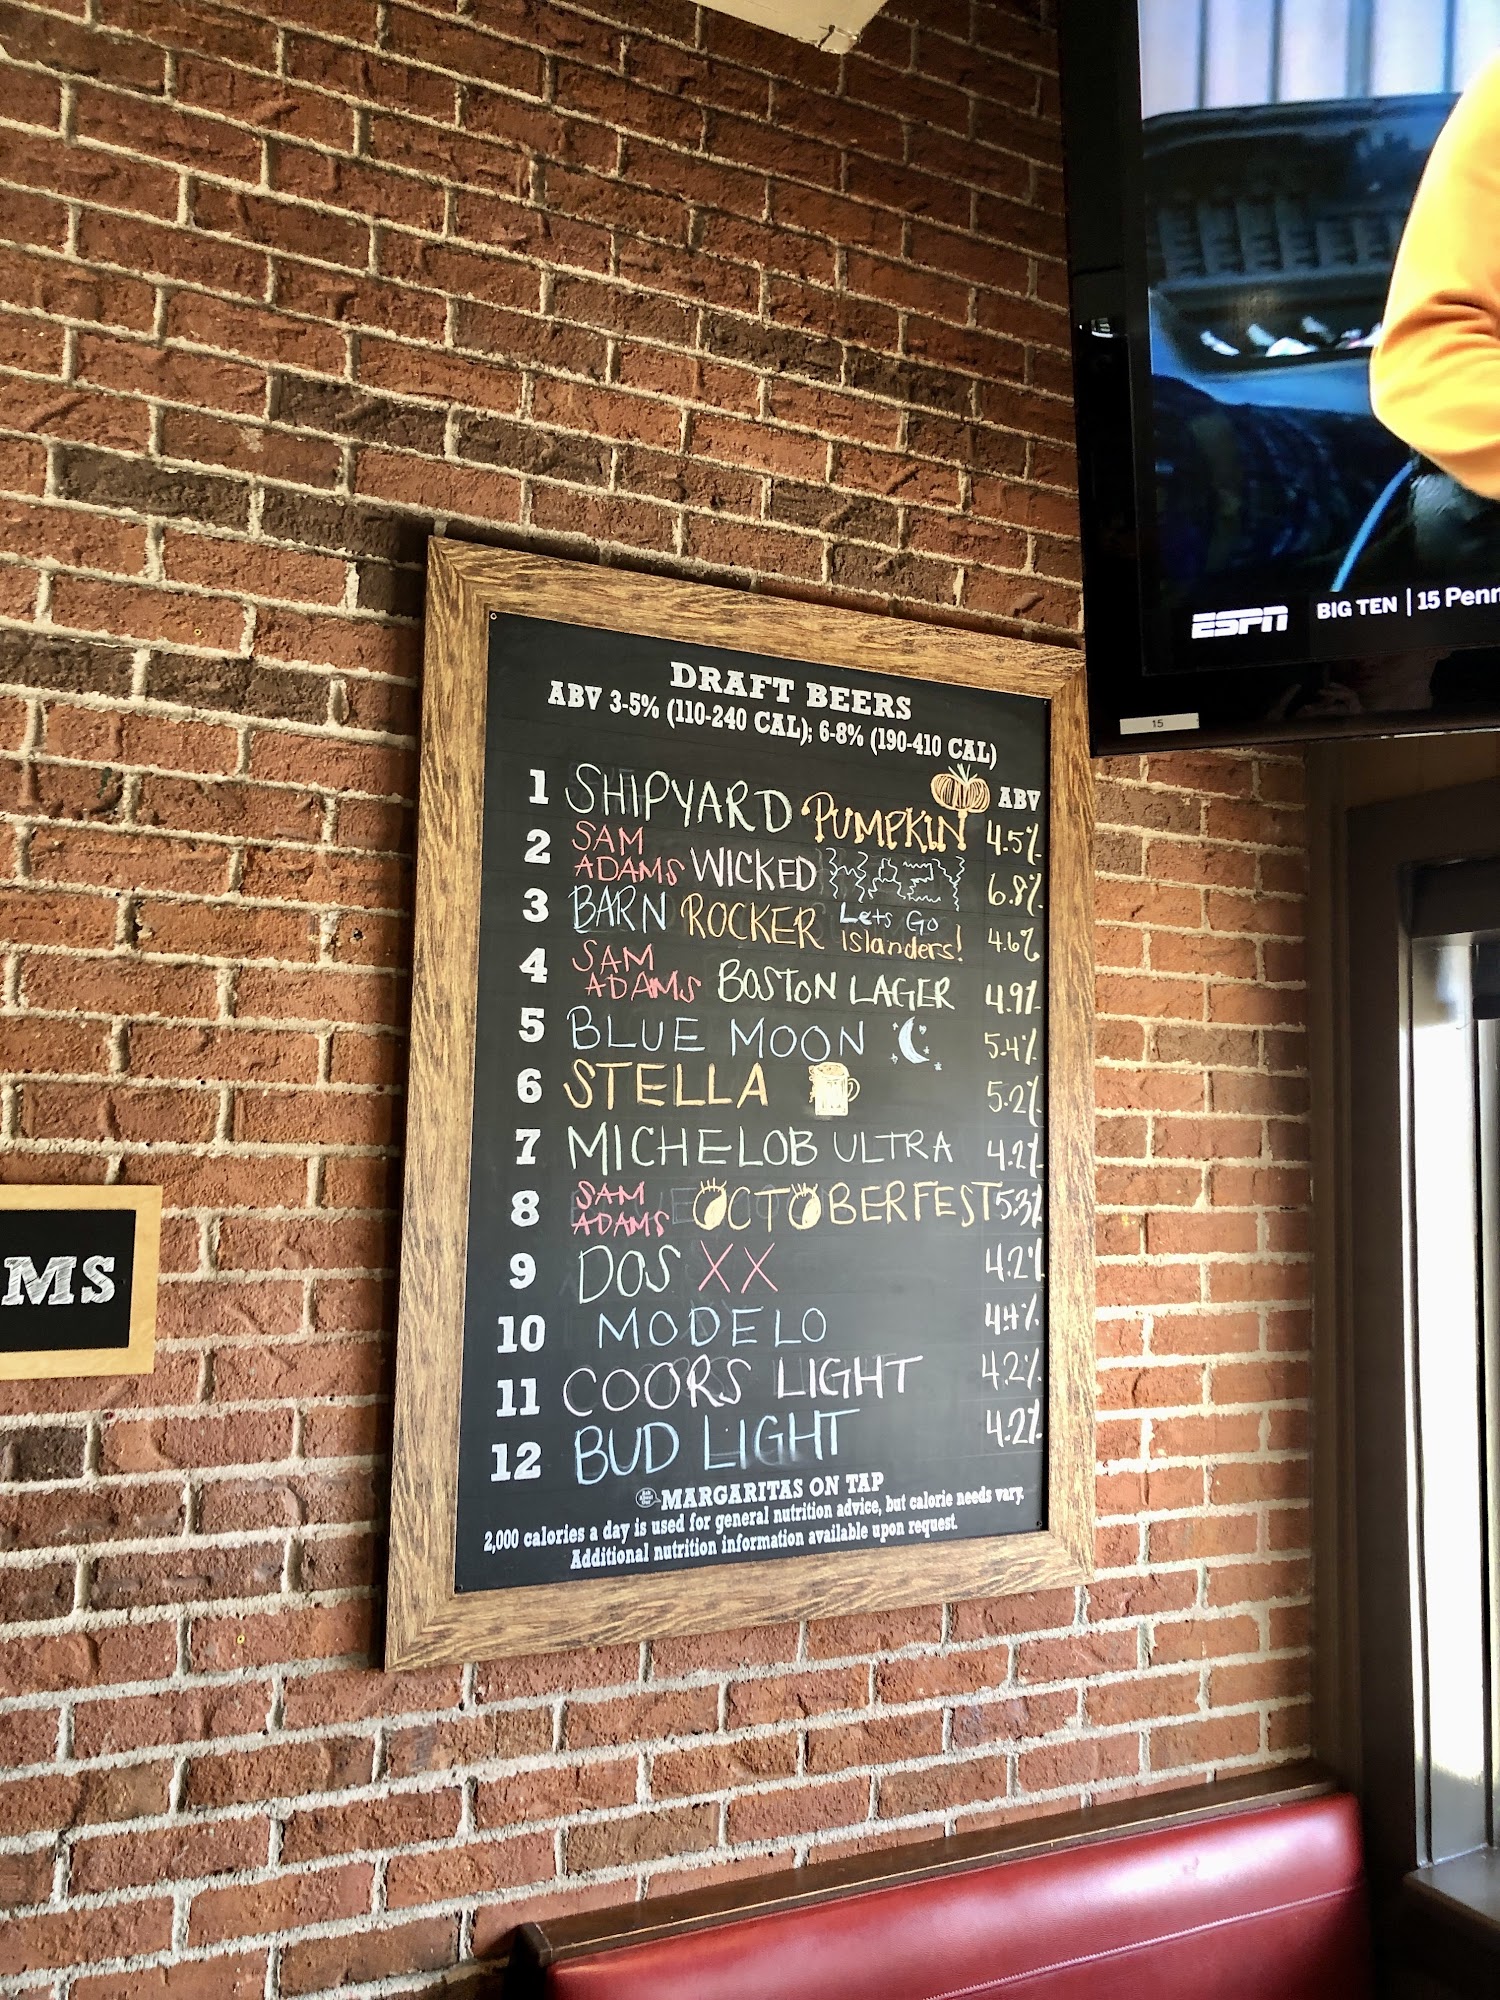 ESPN BIG TEN | 15 Penn
15
DRAFT BEERS
ABV 3-5% (110-240 CAL); 6-8% (190-410 CAL)
ABV
1 SHIPYARD PUMPKIN 4.5%
2 SAM ADAMS WICKED 6.8%
3 BARN ROCKER Lets Go Islanders! 4.6%
4 SAM ADAMS BOSTON LAGER 4.9%
5 BLUE MOON 5.4%
6 STELLA 5.2%
7 MICHELOB ULTRA 4.2%
8 SAM ADAMS OCTOBERFEST 5.3%
9 DOS XX 4.2%
10 MODELO 4.4%
11 COORS LIGHT 4.2%
12 BUD LIGHT 4.2%
MARGARITAS ON TAP
2,000 calories a day is used for general nutrition advice, but calorie needs vary.
Additional nutrition information available upon request.
MS